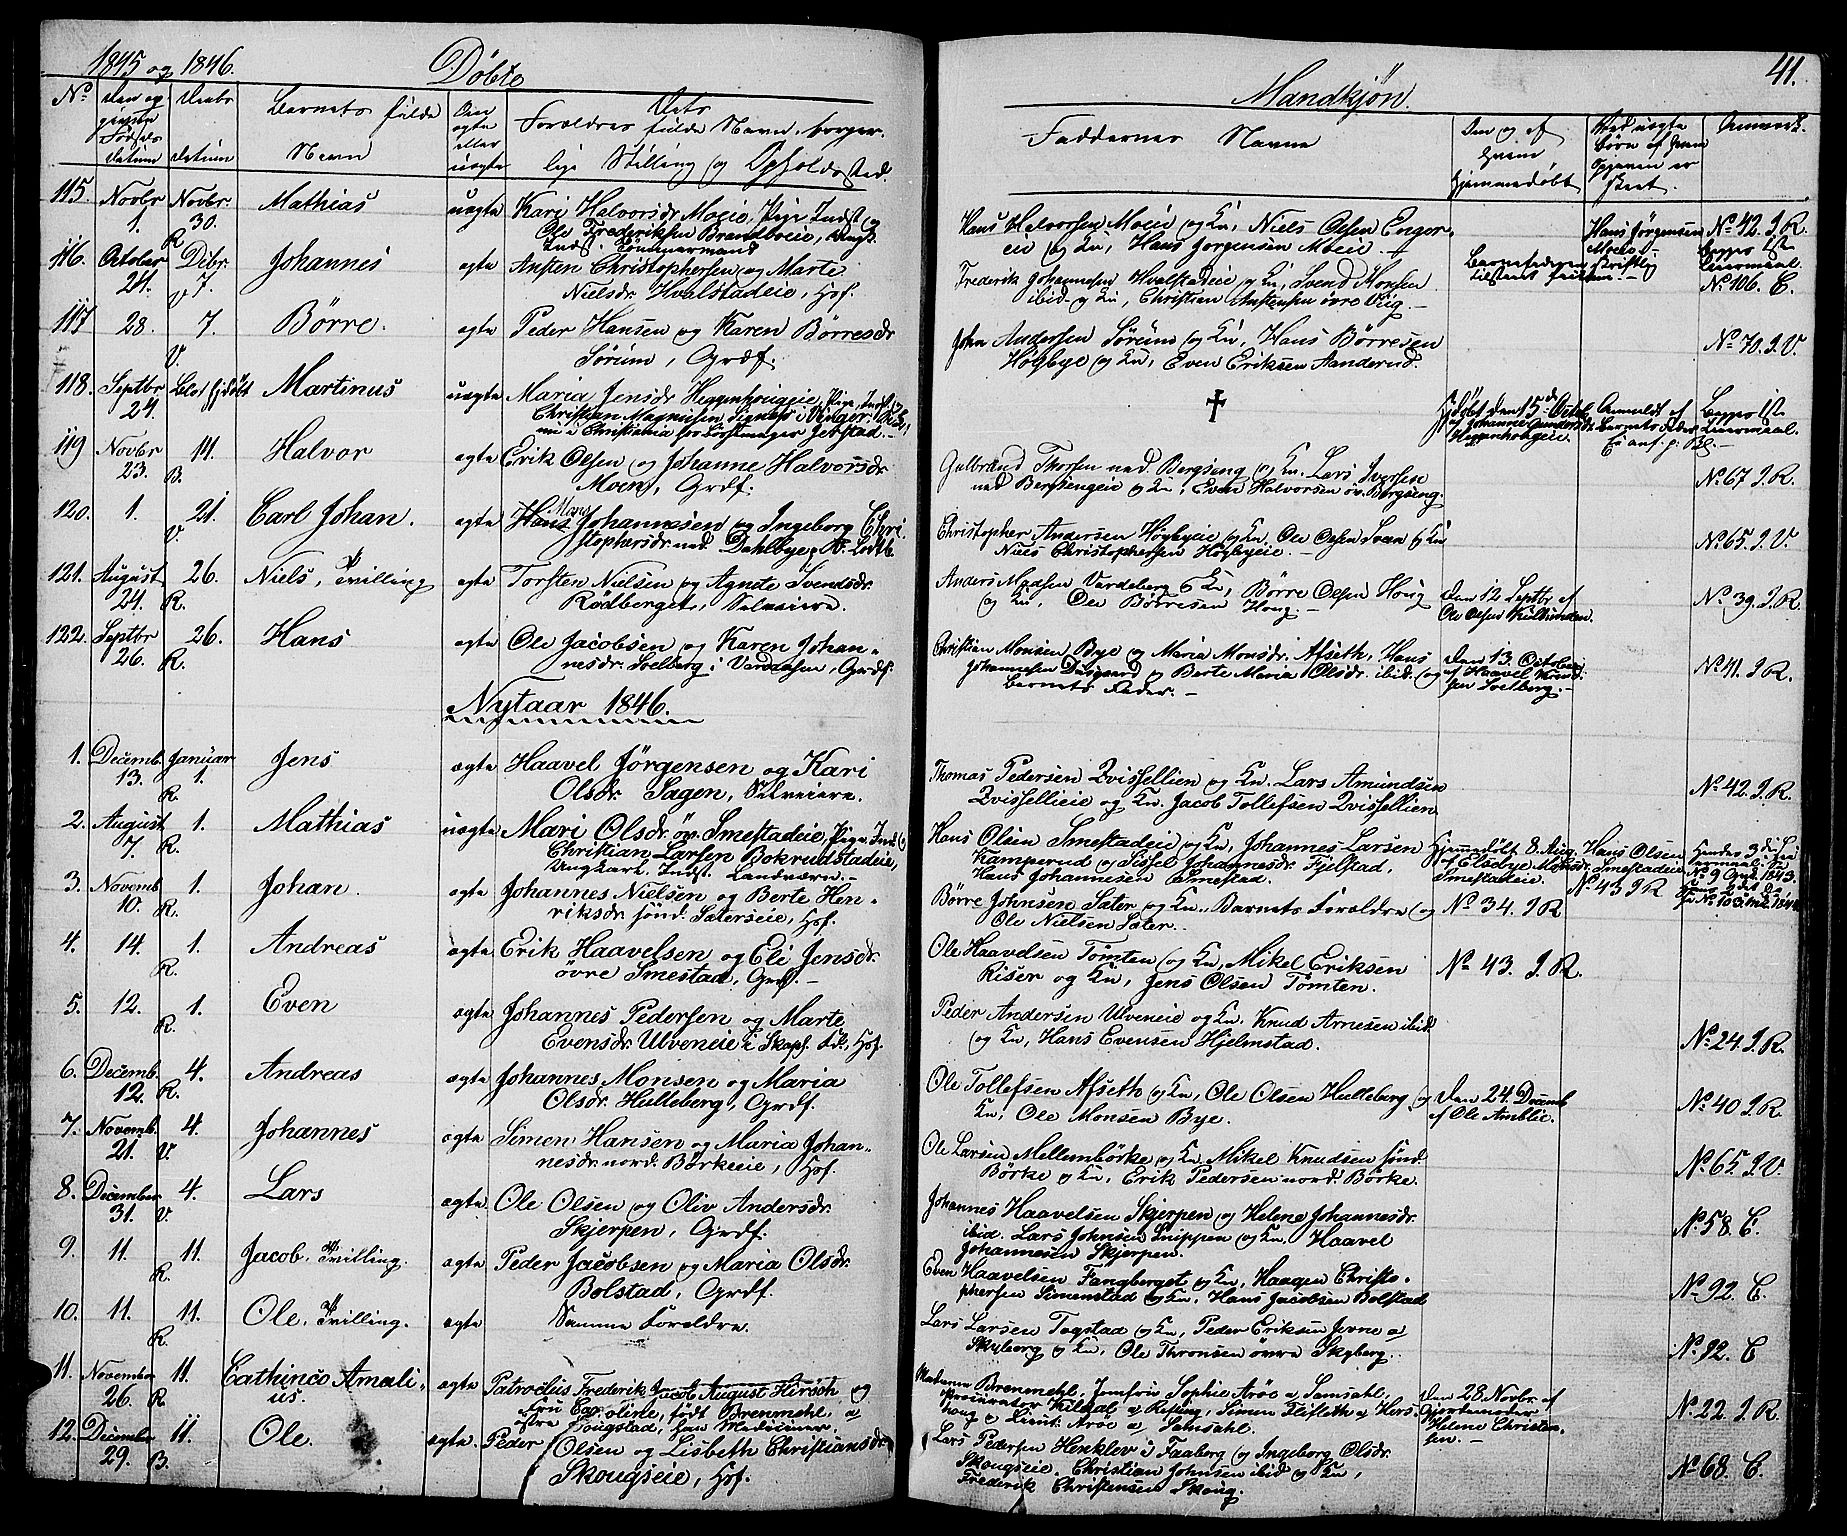 1845 og 1846.
Döbte
Mandkjön.
41.
No
Den og
Daabs
Barnets fulde
Om
Dets
Faddernes Navne
Fødsels
ægte
Forældres fulde Navn, borger-
datum
datum
Navn
eller
uægte
lige Stilling og Opholdssted.
Hjemmedöbt
skeet.
115. Novbr 1. Novbr. 30. R. Mathias uægte Kari Halvorsdr Moeie, Pige Indst og
Ole Frederiksen Brandboeie, Ungk.
Indst. Tømmermand
Hans Halvorsen Moeie og Kn, Niels Olsen Enger-
eie og Kn, Hans Jørgensen Moeie.
Hans Jörgensen
Moeeie
No 42. I R.
116. October 24. Dcbr. 7. V Johannes ægte Ansten Christophersen og Marte
Nielsdr. Hvalstadeie, Hof.
Frederik Johannesen Hvalstadeie og Kn, Svend Monsen
ibid og Kn, Christian Anstensen övre Viig.
No 106. C.
117 28. 7. V. Börre. ægte Peder Hansen og Karen Börresdr
Sörum, Grdf.
John Andersen Sörum og Kn, Hans Börresen
Höybye og Kn, Even Eriksen Aanderud.
No 70. I V.
118. Septbr 24. Martinus uægte Maria Jensdr Heggenhougeie, Pige, Indst og
Christian Magnusen
nu i Christiania
†
Hjdöbt den 15de Octob
af Johanne Gundersdr
Heggenhougeie.
Anmeldt af
Barnets Fader
Lejermaal.
119 Novbr 23. 14. B. Halvor ægte Erik Olsen og Johanne Halvorsdr
Moen, Grdf.
Gulbrand Thorsen ned. Bergseng og Kn. Lars Iversen
ned Bergsengeie og Kn, Even Halvorsen öv. Bergseng.
No 67 I R.
120. 1. 21. V. Carl Johan. ægte Hans Mons Johannesen og Ingeborg Chri-
stophersdr. ned. Dahlbye
Christopher Andersen Höybyeie og Kn, Ole Olsen Sveen og Kn
Niels Christophersen Höybyeie.
No 65. I V.
121. August 24. 26. R. Niels, Tvilling ægte Torsten Nielsen og Agnete Svendsdr.
Rödberget, Selveiere.
Anders Madsen Vardeberg og Kn, Börre Olsen Houg
og Kn, Ole Börresen Houg.
Den 12 Septbr af
Ole Olsen
No 39. I R.
122. Septbr 26. 26. R. Hans ægte Ole Jacobsen og Karen Johan-
nesdr. Soelberg i Vardaasen, Grdf.
Christian Monsen Bye og Maria Monsdr. Afseth, Hans
Johannesen Diisgaard og Berte Maria Olsdr. ibid. og
Barnets Fader.
Den 13. October
af Haavel
Soelberg.
No 41. I R.
Nytaar 1846.
1. Decemb. 13. Januar 1. R. Jens ægte Haavel Jörgensen og Kari
Olsdr. Sagen, Selveiere.
Thomas Pedersen Qvissellien og Kn. Lars Amundsen
Qvissellieie og Kn. Jacob Tollefsen Qvissellien
No 42. I R.
2. August 7. 1. R. Mathias uægte Mari Olsdr. öv. Smestadeie, Pige, Inds og
Christian Larsen Bokrudstadeie,
Ungkarl. Indst. Landværn.
Hans Olsen Smestadeie og Kn, Johannes Larsen
Kamperud og Sissel Johannesdr. Fjelstad,
Hans Johannesen Smestad.
Hjemmedöbt 8. Aug.
af Elsebye Monsdr.
Smestadeie.
Hans Olsen
Smestadeie
No 43 I R
3. Novemb 10. 1. R. Johan. ægte Johannes Nielsen og Berte Hen-
riksdr. sönd. Sæterseie, Hof.
Börre Johnsen Sæter og Kn. Barnets Forældre og
Ole Nielsen Sæter.
No 34. I R
4. 14. 1. R. Andreas ægte Erik Haavelsen og Eli Jensdr.
övre Smestad, Grdf.
Ole Haavelsen Tömten og Kn, Mikel Eriksen
Riser og Kn, Jens Olsen Tömten.
No 43. I R.
5. 12. 1. R. Even ægte Johannes Pedersen og Marte
Evensdr. Ulveneie i Skaps. Fdk, Hof.
Peder Andersen Ulveneie og Kn. Knud Arnesen ibid.
og Kn, Hans Evensen Hjelmstad.
No 24. I R.
6. Decemb. 12. 4. R. Andreas ægte Johannes Monsen og Maria
Olsdr. Hulleberg, Grdf.
Ole Tollefsen Afseth og Kn, Ole Olsen Hulleberg og
Kn, Ole Monsen Bye.
Den 24. Decemb
af Ole Amblie.
No 40 I R.
7. Novemb. 21. 4. V. Johannes ægte Simen Hansen og Maria Johan-
nesdr. nord. Börkeeie, Hof.
Ole Larsen Mellembörke og Kn, Mikel Knudsen sönd.
Börke og Kn, Erik Pedersen nord. Börke.
No 65. I V.
8. December 31. 4. V. Lars ægte Ole Olsen og Oliv Andersdr.
Skjerpen, Grdf.
Johannes Haavelsen Skjerpen og Helene Johannesdr.
ibid. Lars Johnsen Snippen og Kn, Haavel
Johannesen Skjerpen.
No 58. C.
9. 11. 11. R. Jacob. Tvilling. ægte Peder Jacobsen og Maria Olsdr.
Bolstad, Grdf.
Even Haavelsen Fangberget og Kn, Haagen Christo-
phersen Simenstad og Kn, Hans Jacobsen Bolstad
No 92. C.
10. 11. 11. R. Ole. Tvilling. ægte Samme Forældre.
Lars Larsen Togstad og Kn, Peder Eriksen Jevne a/
Skyberg og Kn, Ole Thronsen övre Skyberg.
No 92. C
11. November 26. 11. R. Cathinco Amali-
us. ægte Patroclus Frederik Jacob August Hirsch og
Fru Caroline, född Brenmehl, a/
östre Tougstad, han Mediciner.
Madame Brenmehl, Jomfru Sophie Aröe a/ Samsahl,
Procurator Kildal a/ Refling, Simen Flifleth a/ Hers-
houg og Lieut. Aröe a/ Samsahl.
Den 28 Novbr. af
Gjordemoder
Helene Christen-
sen.
No 22. I R.
12. December 29. 11. B. Ole. ægte Peder Olsen og Lisbeth Christiansdr
Skougseie, Hof.
Lars Pedersen Henklev i Faaberg og Ingeborg Olsdr.
Skougseie. Christian Johnsen ibid og Kn,
Frederik Christensen Skoug.
No 68. C.